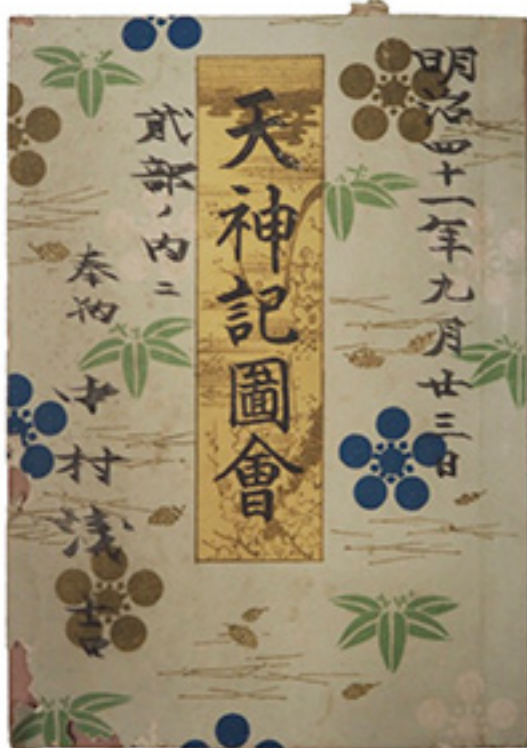 明治四十一年九月廿三日
天神記圖會
貳部ノ内ニ
奉納 中村浅吉